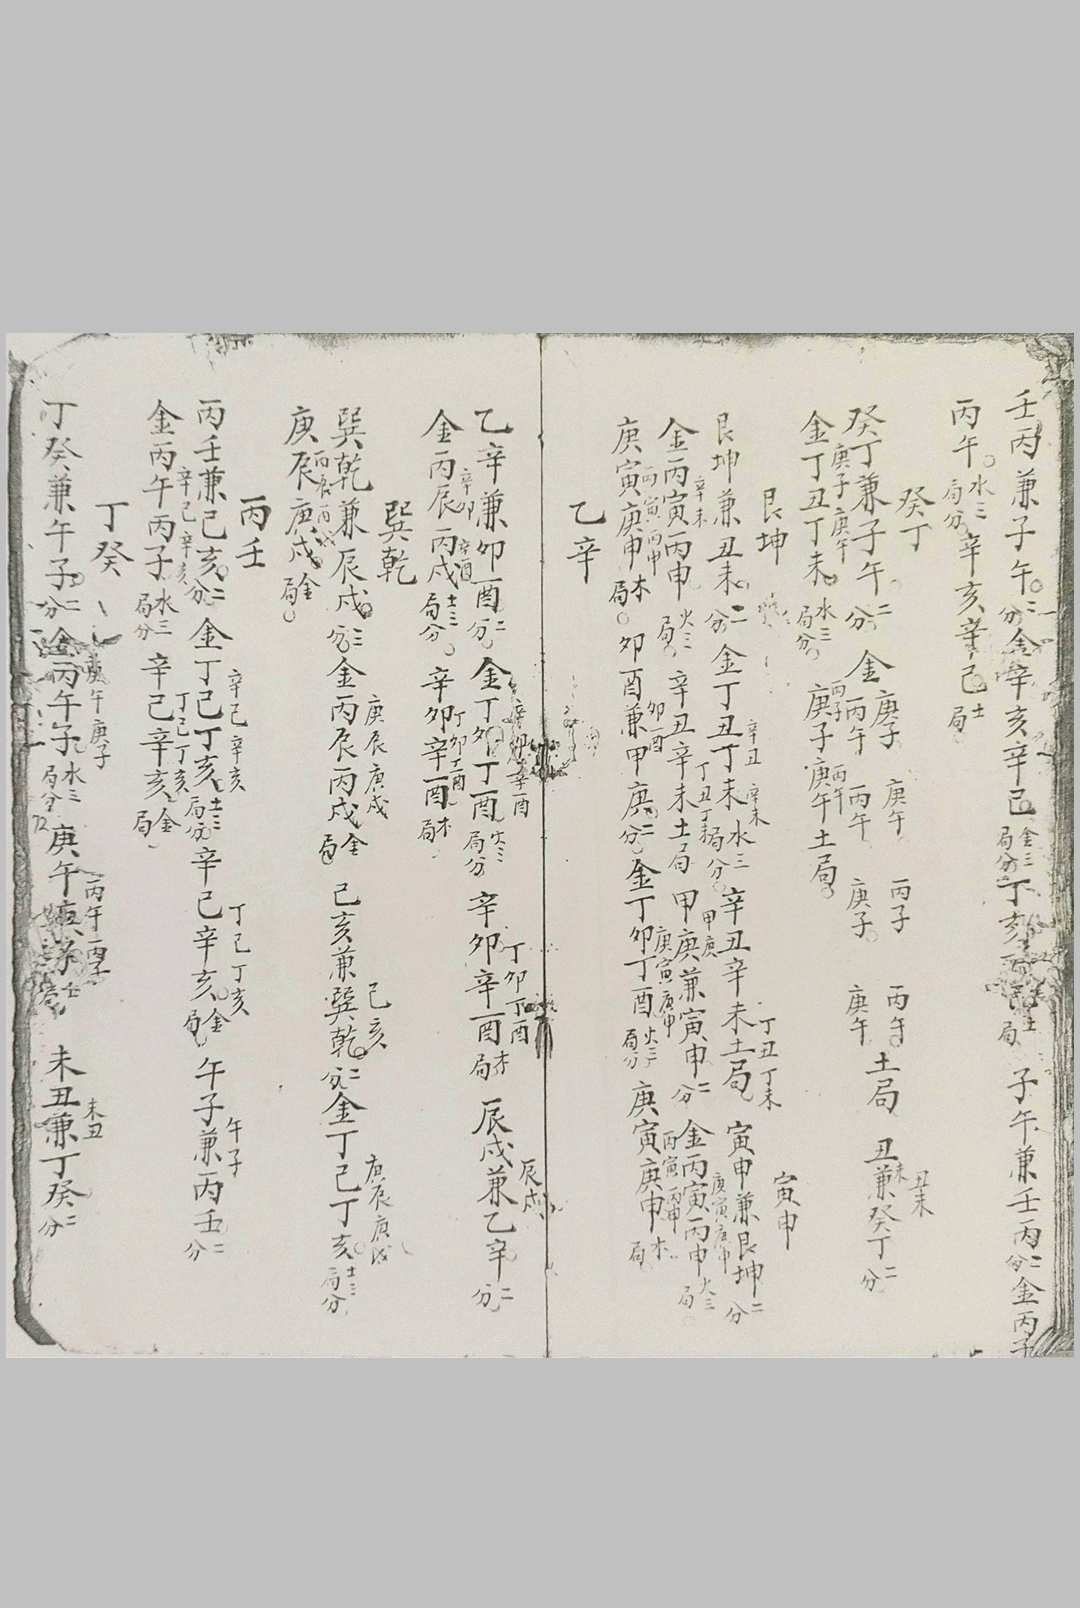 壬丙兼子午二分金辛亥辛巳金三局分丁亥土局子午兼壬丙二分金丙子
丙午水三局分辛亥辛巳土局
癸丁
癸丁兼子午二分金庚子丙午庚午丙午丙子庚子丙午庚午土局丑未兼癸丁二分
丑未
庚子庚午
金丁丑丁未水三局分庚子庚午土局
丙子丙午
艮坤
寅申
艮坤兼丑未二分金丁丑丁未水三局分辛丑辛未土局寅申兼艮坤二分
辛丑辛未丁丑丁未
辛未丁丑丁未甲庚庚寅庚申
金丙寅丙申火三局辛丑辛未土局甲庚兼寅申二分金丙寅丙申火三局
丙寅丙申卯酉庚寅庚申丙寅丙申
庚寅庚申木局卯酉兼甲庚二分金丁卯丁酉火三局分庚寅庚申木局
乙辛
乙辛兼卯酉二分金丁卯丁酉火三局分辛卯辛酉木局辰戌兼乙辛二分
辛卯辛酉丁卯丁酉辰戌
辛卯辛酉丁卯丁酉
金丙辰丙戌土三局分辛卯辛酉木局
巽乾
巽乾兼辰戌三分金丙辰丙戌金局己亥兼巽乾二分金丁巳丁亥土三局分
庚辰庚戌己亥庚辰庚戌
庚辰庚戌金局
丙辰丙戌
丙壬
丙壬兼己亥二分金丁巳丁亥土三局分辛巳辛亥金局午子兼丙壬二分
辛巳辛亥丁巳丁亥午子
金丙午丙子水三局分辛巳辛亥金局
辛巳辛亥丁巳丁亥
丁癸
丁癸兼午子二分金丙午子水三局分庚午庚子土局未丑兼丁癸二分
庚午庚子丙午丙子未丑